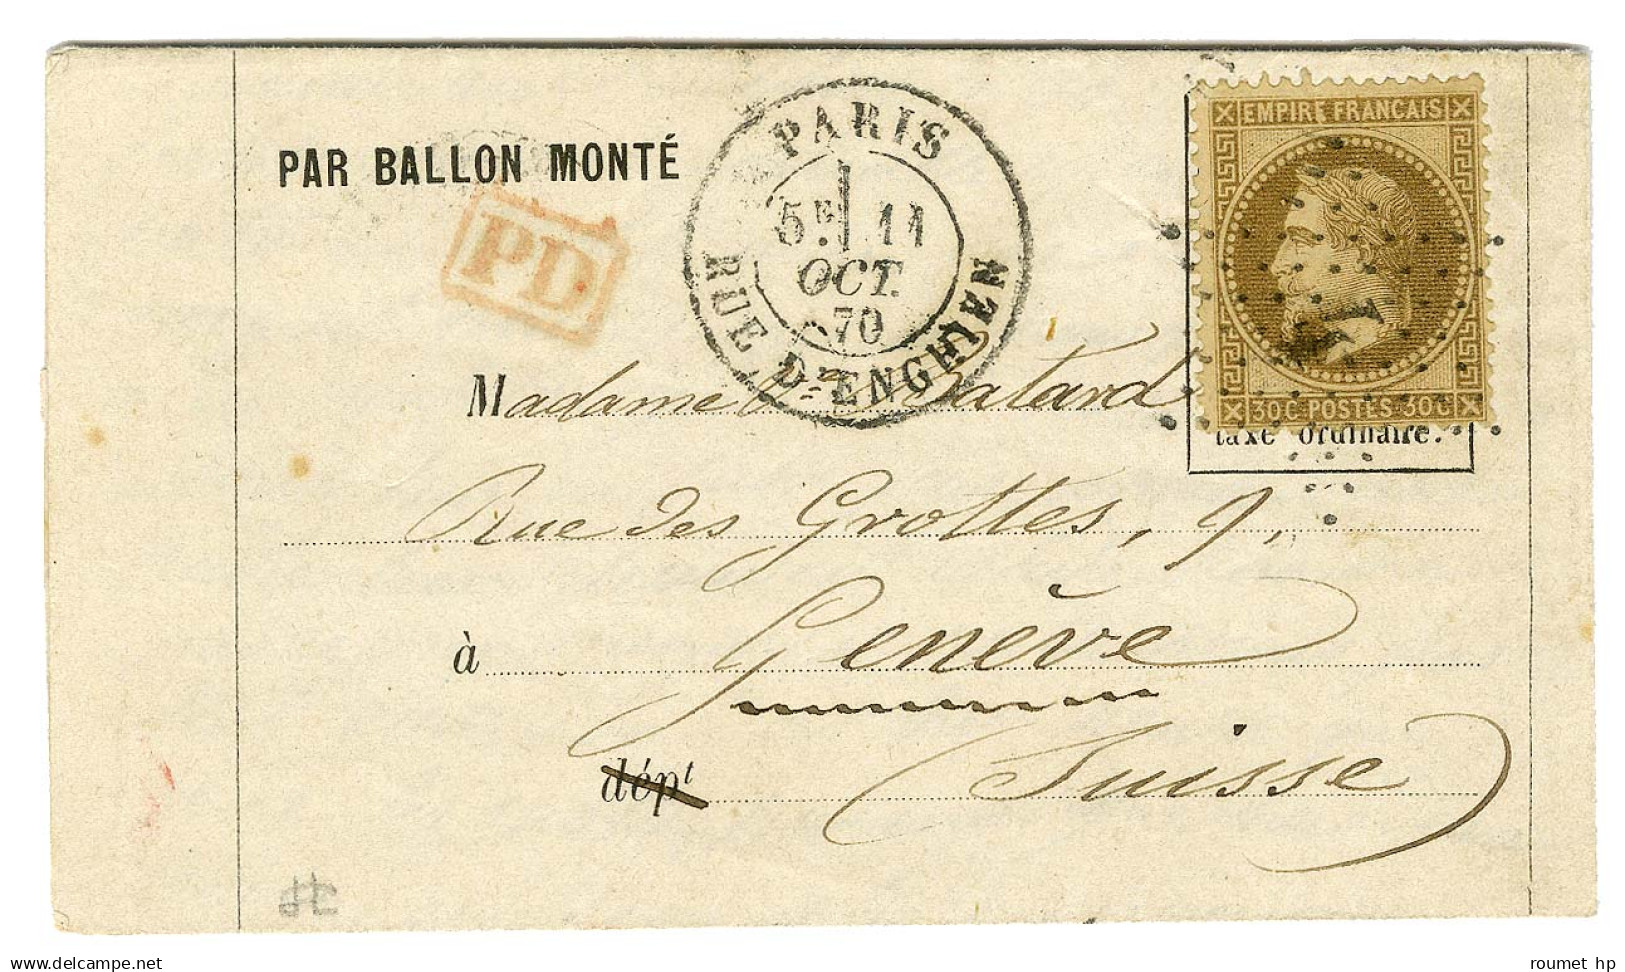 PAR BALLON MONTÉ
PD
PARIS
5E 11
OCT.
70
RUE D'ENGHIEN
EMPIRE FRANCAIS
30C POSTES 30C
taxe ordinaire.
Madame Vve Batard
Rue des Grottes, 9,
à Genève
dépt Suisse
www.delcampe.net
roumet hp